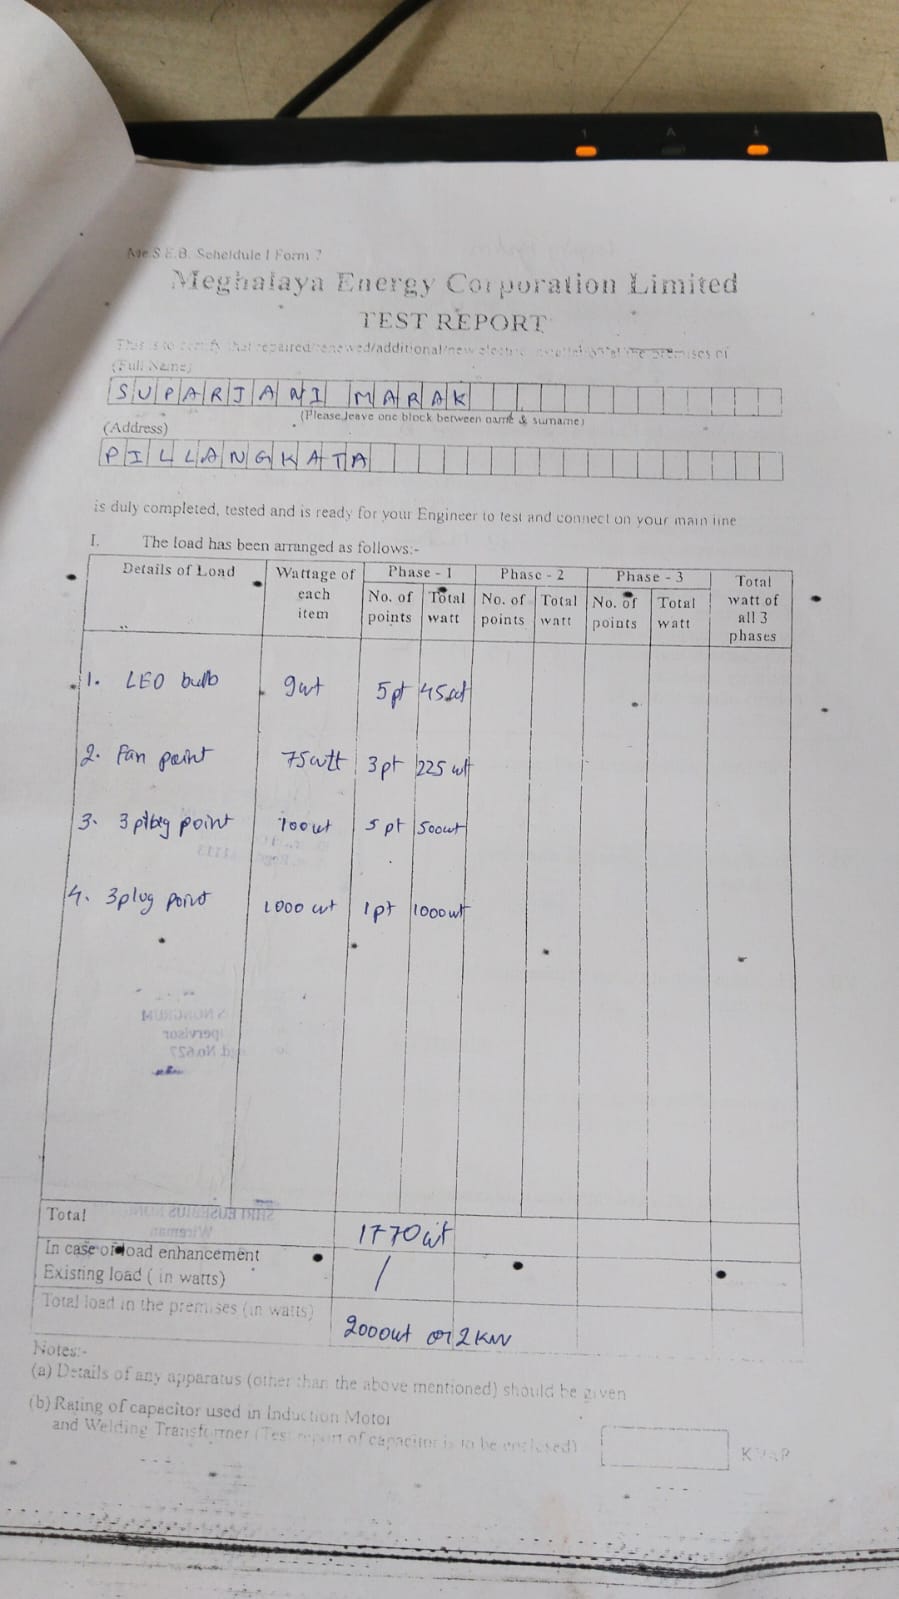 Me.S.E.B. Scheldule I Form 7
Meghalaya Energy Corporation Limited
TEST REPORT
This is to certify that repaired/renewed/additional/new electric installation at the premises of
(Full Name)
SUPARJANI MARAK
(Please leave one block between name & surname)
(Address)
PILLANGKATA
is duly completed, tested and is ready for your Engineer to test and connect on your main line
I. The load has been arranged as follows:-
Details of Load Wattage of each item Phase - 1 Phase - 2 Phase - 3 Total watt of all 3 phases
No. of points Total watt No. of points Total watt No. of points Total watt
1. LED bulb 9wt 5pt 45wt
2. Fan point 75wtt 3pt 225 wt
3. 3 plug point 100wt 5 pt 500wt
4. 3plug point 1000 wt 1pt 1000wt
Total 1770wt
In case of load enhancement
Existing load ( in watts) /
Total load in the premises (in watts) 2000wt or 2 KW
Notes:-
(a) Details of any apparatus (other than the above mentioned) should be given
(b) Rating of capacitor used in Induction Motor
and Welding Transformer (Test report of capacitor is to be enclosed) KVAR